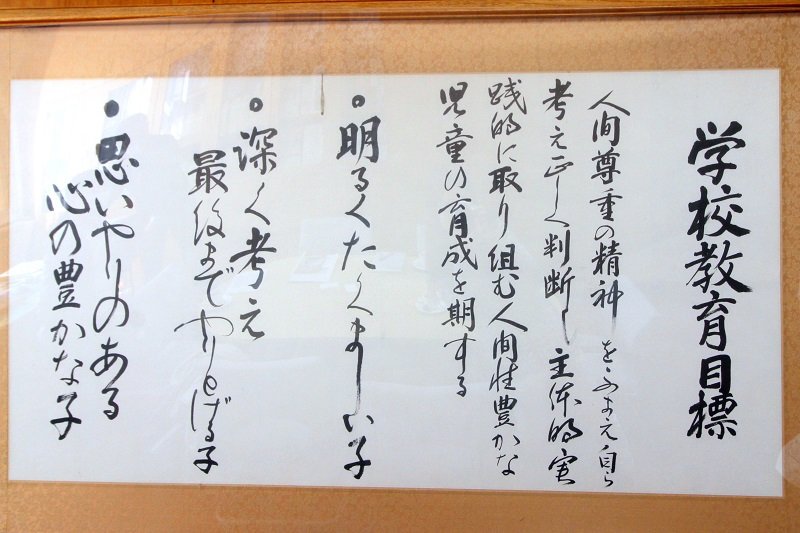 学校教育目標
人間尊重の精神をふまえ自ら
考え正しく判断し主体的実
践的に取り組む人間性豊かな
児童の育成を期する
。明るくたくましい子
。深く考え
最後までやりとげる子
・思いやりのある
心の豊かな子